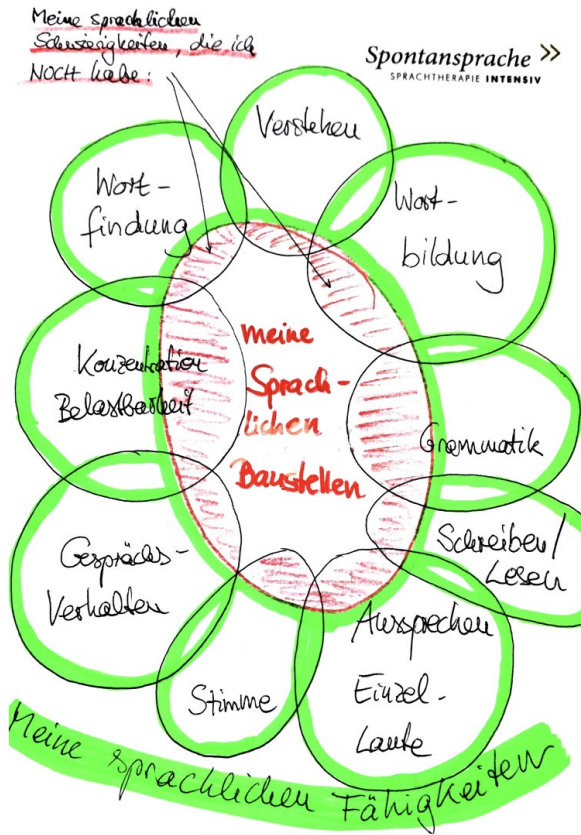 Meine sprachlichen
Schwierigkeiten, die ich
NOCH habe:
Spontansprache
SPRACHTHERAPIE INTENSIV
Verstehen
Wort-
findung
Wort-
bildung
Konzentration
Belastbarkeit
meine
Sprach-
lichen
Baustellen
Grammatik
Schreiben/
Lesen
Gesprächs-
Verhalten
Aussprechen
Einzel-
Laute
Stimme
Meine sprachlichen Fähigkeiten